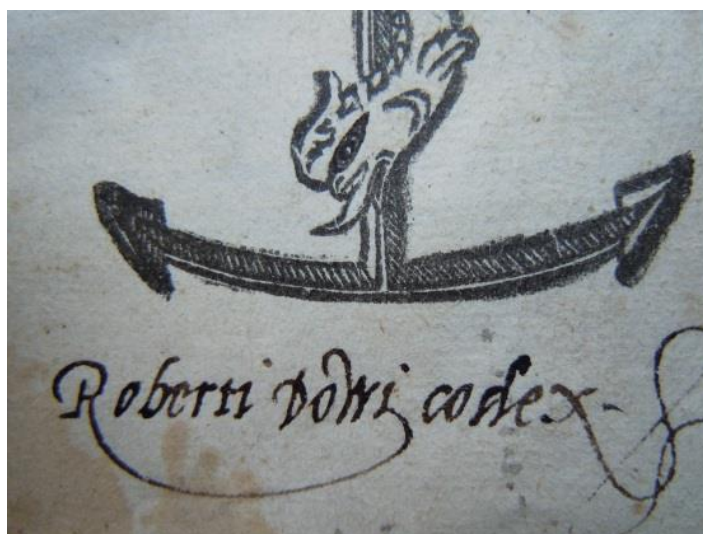 Roberti Dowi codex